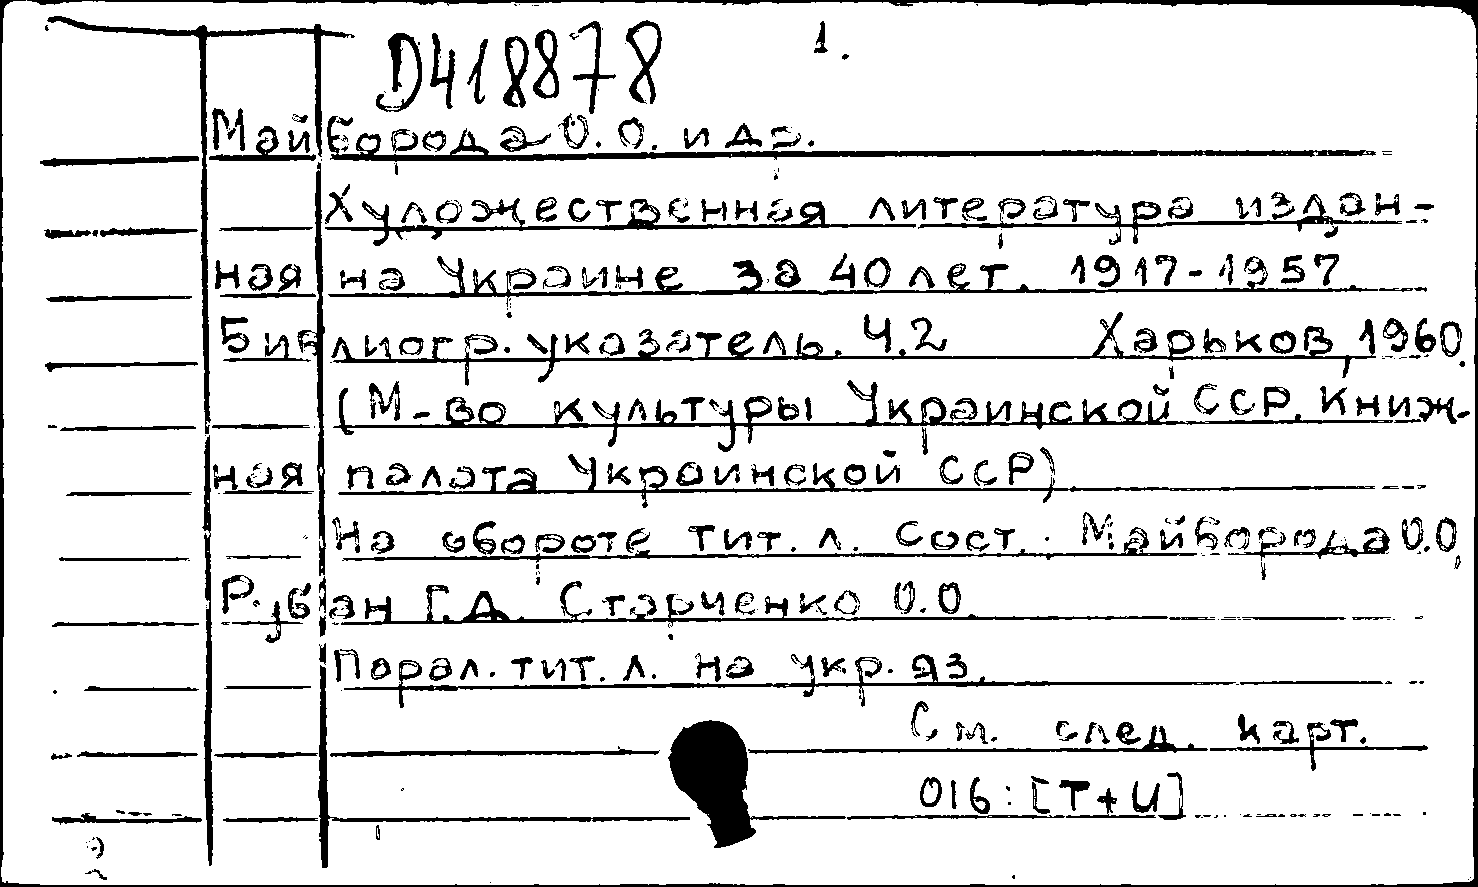 D418878 1.
Майборода О.О. и др.
Художественная литература издан-
ная на Украине за 40 лет. 1917-1957.
Библиогр. указатель. Ч.2 Харьков, 1960.
(М-во культуры Украинской ССР. Книж-
ная палата Украинской ССР)
На обороте тит. л. Сост.: Майборода О.О,
Рубан Г.Д. Старченко О.О.
Парал. тит. л. на укр. яз.
См. след. карт.
016:[Т+И]